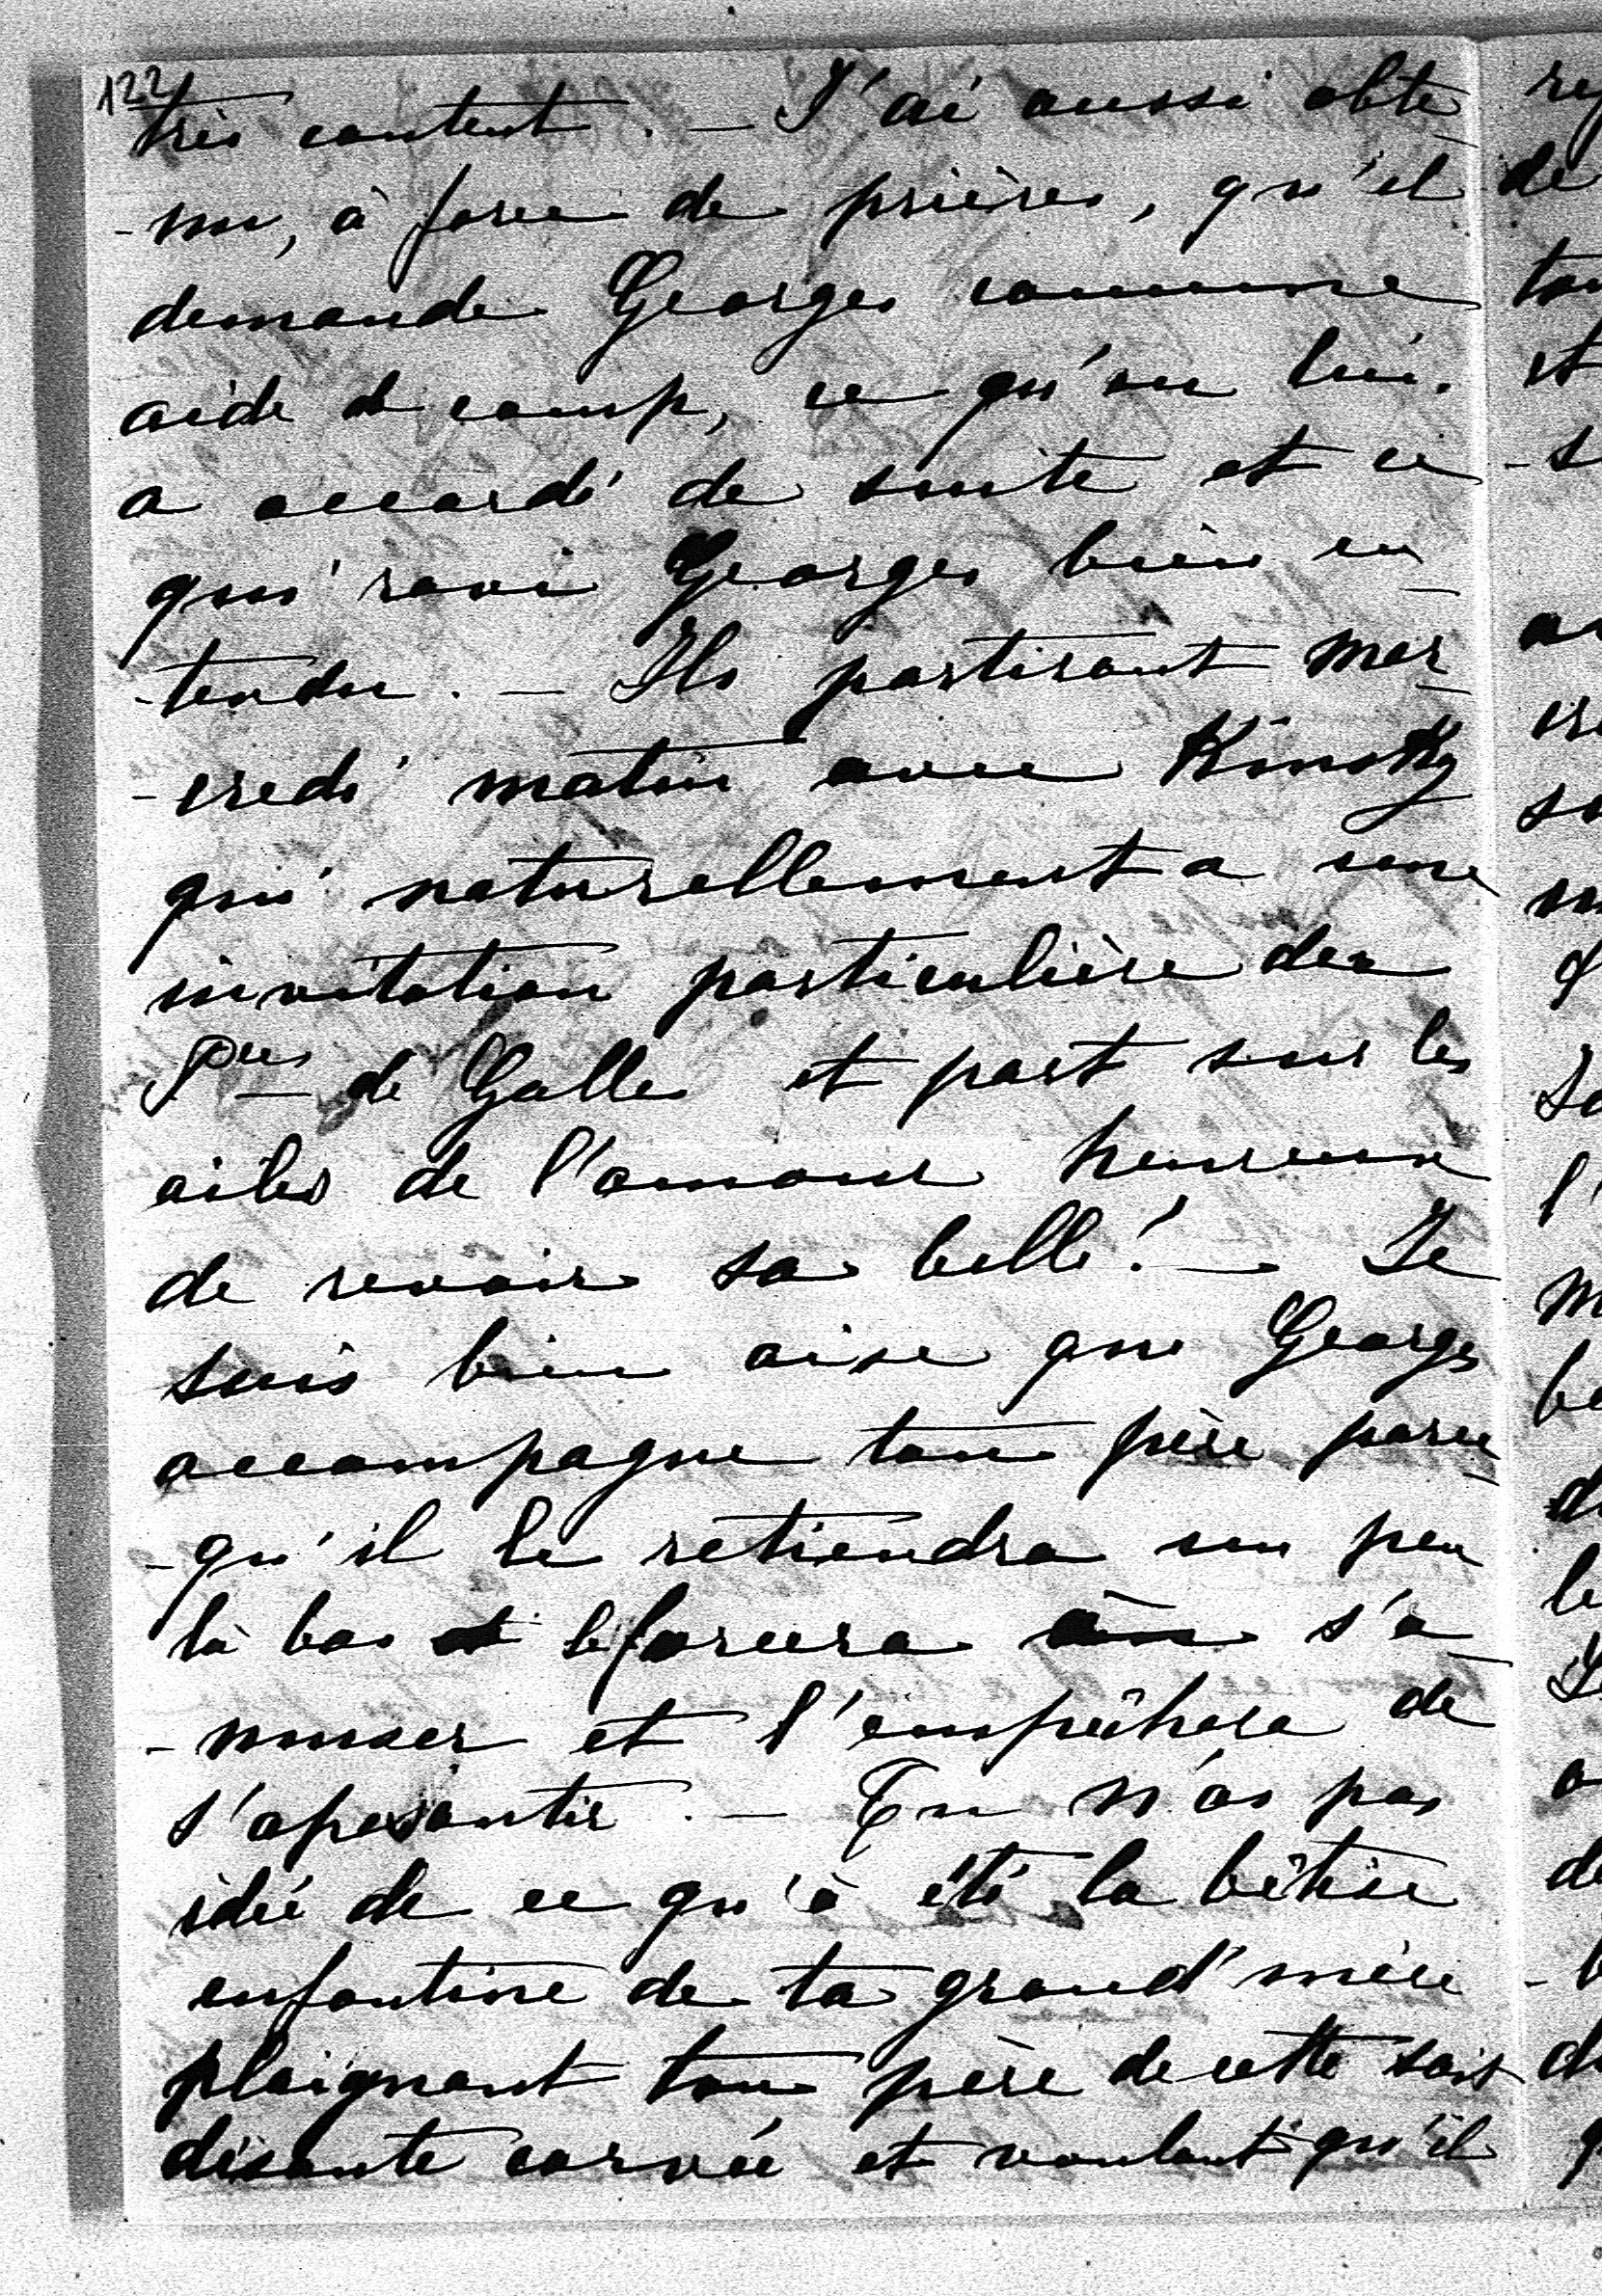 122
très content. — J'ai aussi obte
-nu, à force de prières, qu'il
demande Georges comme
aide de camp, ce qu'on lui
a accordé de suite et ce
qui ravi Georges bien en
-tendu. — Ils partiront mer
-credi matin avec Kinsky
qui naturellement a une
invitation particulière des
Pces de Galles et part sur les
ailes de l'amour heureux
de revoir sa belle! — Je
suis bien aise que Georges
accompagne ton père parce
-qu'il le retiendra un peu
là bas et le forcera à s'a
-muser et l'empêchera de
s'apesantir. — Tu n'as pas
idée de ce qu'à été la bêtise
enfantine de ta grand'mère
plaignant ton père de cette sois
disante corvée et voulant qu'il